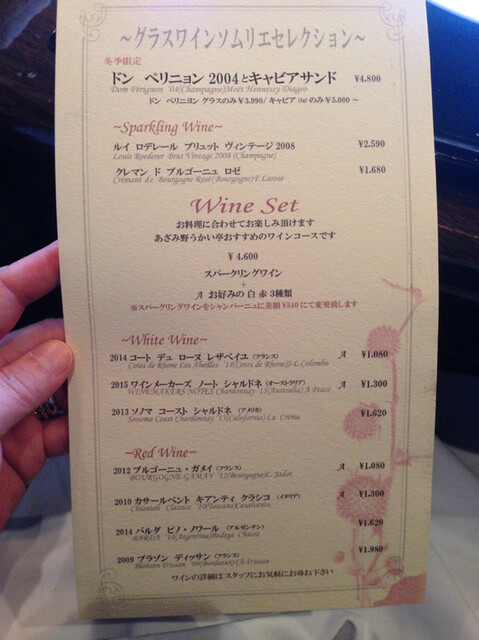 ～グラスワインソムリエセレクション～
冬季限定
ドン ペリニョン 2004とキャビアサンド ¥4.800
Dom Pérignon '04(Champagne)Moët Hennessy Diageo
ドン ペリニヨン グラスのみ¥3.990/キャビア のみ¥5.000～
~Sparkling Wine~
ルイ ロデレール ブリュット ヴィンテージ2008 ¥2.590
Louis Roederer Brut Vintage 2008 (Champagne)
クレマン ド ブルゴーニュ ロゼ ¥1.680
Crémant de Bourgogne Rosé(Bourgogne)F.Larose
Wine Set
お料理に合わせてお楽しみ頂けます
あざみ野うかい亭おすすめのワインコースです
¥ 4.600
スパークリングワイン
+
A お好みの 白 赤 3種類
※スパークリングワインをシャンパーニュに差額¥540にて変更致します
~White Wine~
2014 コート デュ ローヌ レザベイユ (フランス) A ¥1.080
Cotes de Rhone Les Abeilles '14(Cotes de Rhone)J-L.Colombo
2015 ワインメーカーズ ノート シャルドネ (オーストラリア) A ¥1.300
WINEMAKERS NOTES Chardonnay '15(Australia) A Peace
2013 ソノマ コースト シャルドネ (アメリカ) ¥1.620
Sonoma Coast Chardonnay '13(California) La Crema
~Red Wine~
2012 ブルゴーニュ・ガメイ (フランス) A ¥1.080
BOURGOGNE GAMAY '12(Bourgogne)L. Jadot
2010 カサールベント キアンティ クラシコ (イタリア) A ¥1.300
Chianti Classico '10(Toscana)Casalvento
2014 バルダ ピノ・ノワール (アルゼンチン) ¥1.620
BARDA '14(Argentina)Bodega Chacra
2009 ブラゾン ディッサン (フランス) ¥1.980
Blason D'issan '09(Bordeaux)Ch.D'issan
ワインの詳細はスタッフにお気軽にお尋ね下さい